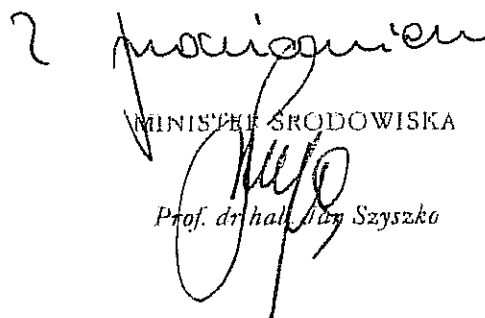 Z poważaniem
MINISTER ŚRODOWISKA
Prof. dr hab. Jan Szyszko